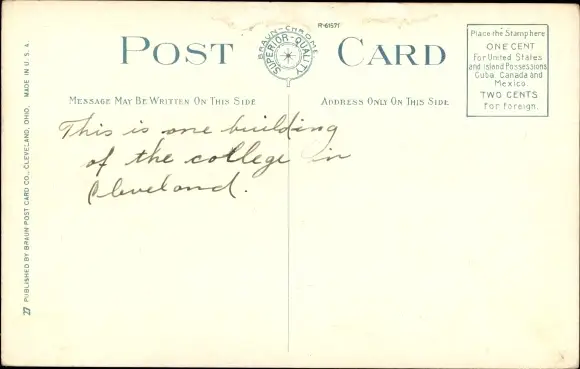 POST CARD
BRAUN-CHROME
SUPERIOR-QUALITY
R-61571
Place the Stamp here
ONE CENT
For United States
and Island Possessions
Cuba, Canada and
Mexico.
TWO CENTS
for foreign.
MESSAGE MAY BE WRITTEN ON THIS SIDE
ADDRESS ONLY ON THIS SIDE
This is one building
of the college in
Cleveland.
27 PUBLISHED BY BRAUN POST CARD CO., CLEVELAND, OHIO, MADE IN U. S. A.